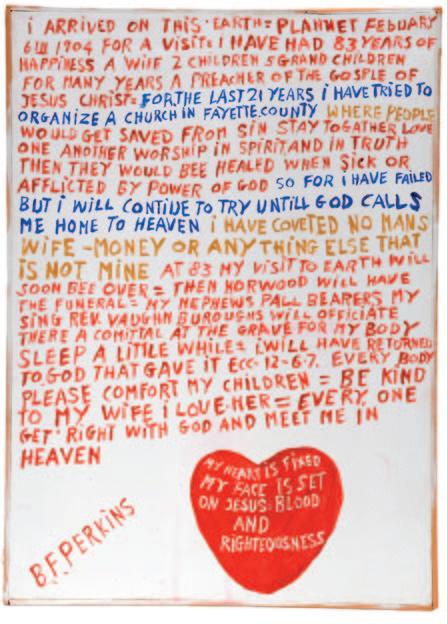 i ARRIVED ON THIS EARTH= PLANNET FEBUARY
6TH 1904 FOR A VISIT= I HAVE HAD 83 YEARS OF
HAPPINESS A WIFE 2 CHILDREN 5 GRAND CHILDREN
FOR MANY YEARS A PREACHER OF THE GOSPLE OF
JESUS CHRIST= FOR THE LAST 21 YEARS i HAVE TRIED TO
ORGANIZE A CHURCH IN FAYETTE COUNTY WHERE PEOPLE
WOULD GET SAVED FROM SIN STAY TOGATHER LOVE
ONE ANOTHER WORSHIP IN SPIRIT AND IN TRUTH
THEN THEY WOULD BEE HEALED WHEN SICK OR
AFFLICTED BY POWER OF GOD SO FOR i HAVE FAILED
BUT i WILL CONTIUE TO TRY UNTILL GOD CALLS
ME HOME TO HEAVEN i HAVE COVETED NO MANS
WIFE - MONEY OR ANYTHING ELSE THAT
IS NOT MINE AT 83 MY VISIT TO EARTH WILL
SOON BEE OVER = THEN NORWOOD WILL HAVE
THE FUNERAL= MY NEPHEWS PALL BEARERS MY
SING REV. VAUGHN BUROUGHS WILL OFFICIATE
THERE A COMITTAL AT THE GRAVE FOR MY BODY
SLEEP A LITTLE WHILE= i WILL HAVE RETURNED
TO GOD THAT GAVE IT ECC-12-6-7. EVERY BODY
PLEASE COMFORT MY CHILDREN = BE KIND
TO MY WIFE i LOVE HER= EVERY ONE
GET RIGHT WITH GOD AND MEET ME IN
HEAVEN
MY HEART IS FIXED
MY FACE IS SET
ON JESUS: BLOOD
AND
RIGHTEOUSNESS
B.F. PERKINS